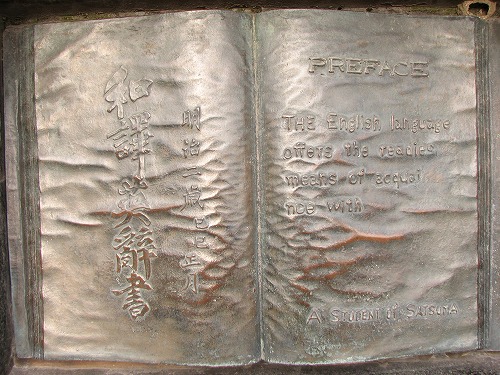 和譯英辭書
明治二歳己巳正月
PREFACE
THE English language
offers the readies
means of acquai
nce with
A STUDENT OF SATSUMA